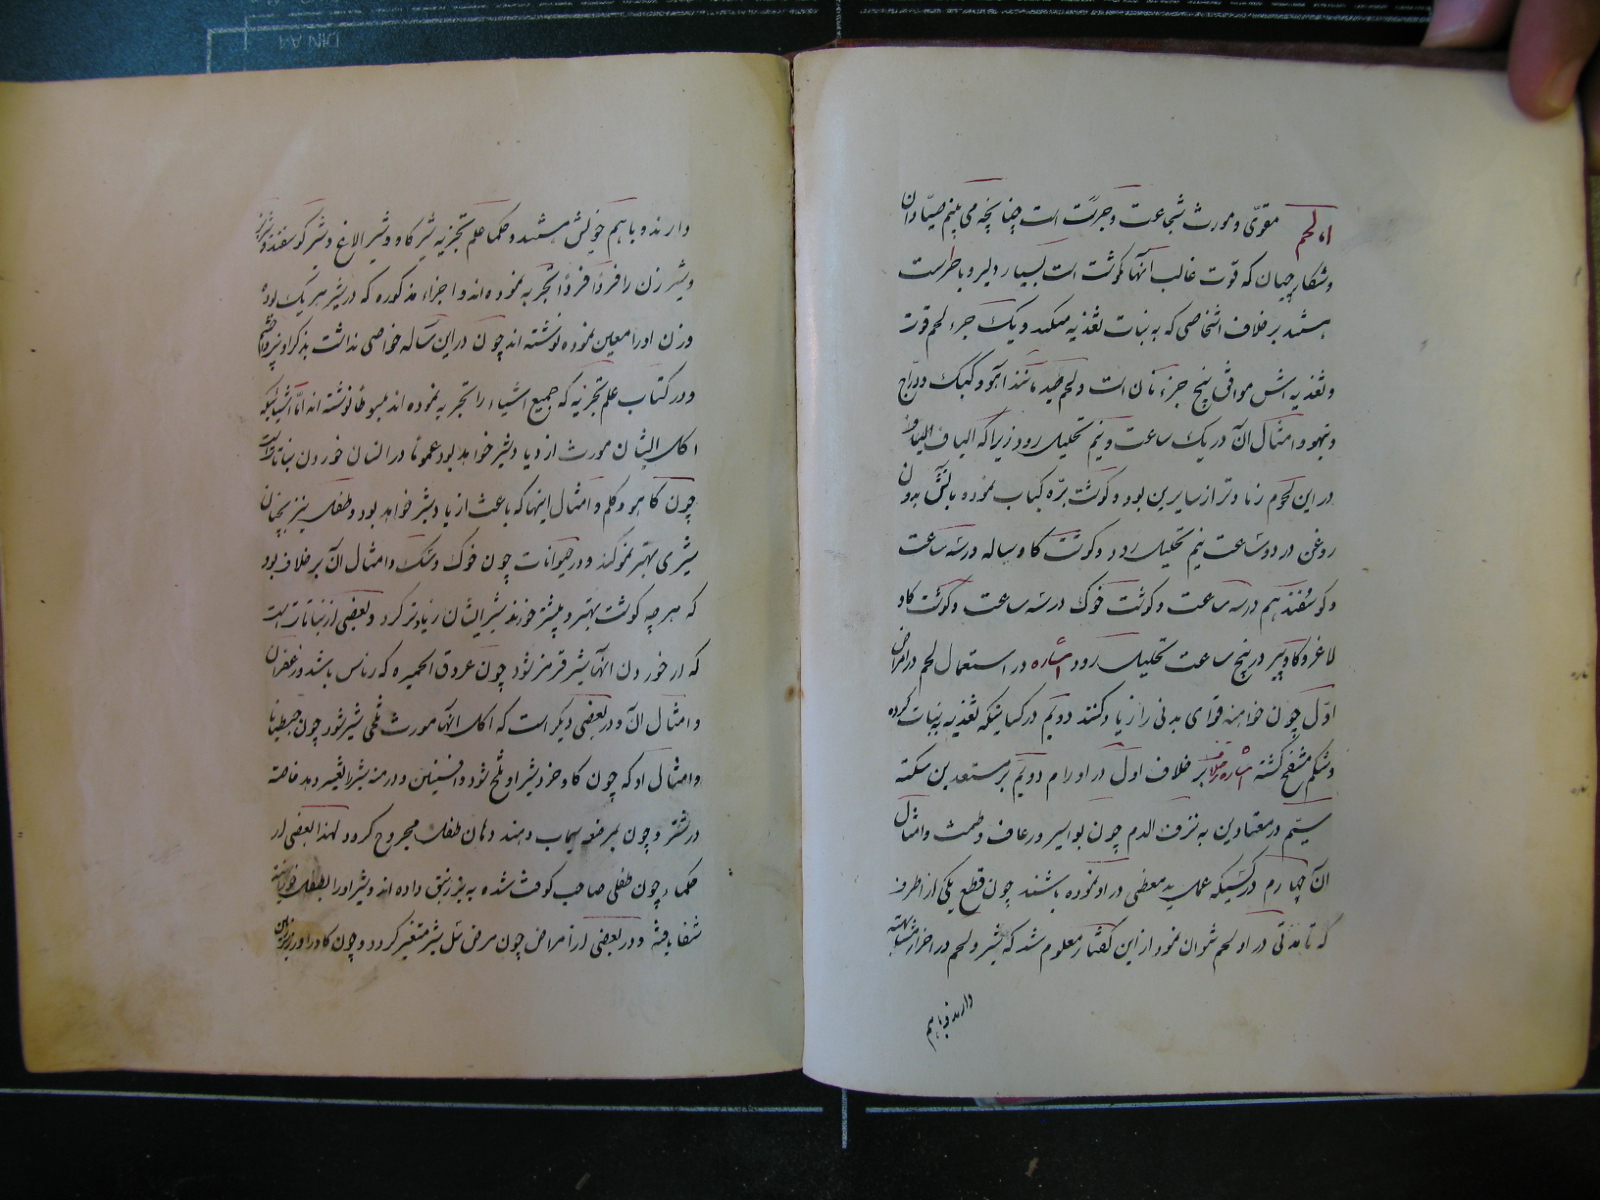 اما لحم مقوّی و مورث شجاعت و جرئت است چنانچه می بینم صیّادان
و شکارچیان که قوت غالب آنها گوشت است بسیار دلیر و با جرئت
هستند بر خلاف اشخاصی که به نبات تغذیه میکنند و یک جزء لحم قوت
و تغذیه اش موافق پنج جزء نان است و لحم صید مانند آهو و کبک و درّاج
و تیهو و امثال آن در یک ساعت و نیم تحلیل رود زیرا که الیاف
در این لحوم زیادتر از سایرین بود و گوشت برّه کباب نموده بآتش بدون
روغن در دو ساعت نیم تحلیل رود و گوشت گاو ساله در سه ساعت
و گوسفند هم در سه ساعت و گوشت خوک در سه ساعت و گوشت گاو
لاغر و گاو پیر در پنج ساعت تحلیل رود اشاره در استعمال لحم در امراض
اوّل چون خواهند قوای بدنی را زیاد کنند دویم در کسانیکه تغذیه به نبات کرده
و شکم منتفخ گشته اشاره بر خلاف اول در اورام دویم بر مستعدین سکته
سیّم در معتادین به نزف الدم چون بواسیر و رعاف و طمث و امثال
آن چهارم در کسیکه عمل ید معظمی در او نموده باشند چون قطع یکی از اطراف
که تا مدتی در او لحم نتوان نمود از این گفتار معلوم شد که شیر و لحم در اجزاء مشابهت
دارند و با هم
دارند و با هم خویش هستند و حکماء علم تجزیه شیر گاو و شیر الاغ و شیر گوسفند و شیر بز
و شیر زن را فرداً فرداً تجربه نموده اند و اجزاء مذکوره که در شیر هر یک بوده
وزن او را معین نموده نوشته اند چون در این رساله خواصی نداشت بذکر او نپرداختیم
و در کتاب علم تجزیه که جمیع اشیاء را تجربه نموده اند مبسوطا نوشته اند امّا اشیائیکه
اکل ایشان مورث ازدیاد شیر خواهد بود عموماً در انسان خوردن نباتات است
چون کاهو و کلم و امثال اینها که باعث ازدیاد شیر خواهد بود و طفل نیز بچنان
شیری بهتر نمو کند و در حیوانات چون خوک و سگ و امثال آن بر خلاف بود
که هر چه گوشت بهتر و بیشتر خورند شیر ایشان زیادتر گردد و بعضی از نباتات است
که از خوردن آنها شیر قرمز شود چون عروق الحمیره که رناس باشد و زعفران
و امثال آن و در بعضی دیگر است که اکل آنها مورث تلخی شیر شود چون جنطیانا
و امثال او که چون گاو خورد شیر او تلخ شود و افسنتین و درمنه شیر را تغییر دهد خاصه
در شتر و چون بمرضعه سیماب دهند دهان طفل مجروح گردد لهذا بعضی از
حکماء چون طفلی صاحب کوفت شده به بز زیبق داده اند و شیر او را بطفل
شفا یافته و در بعضی از امراض چون مرض سل شیر متغیر گردد و چون گاو در او